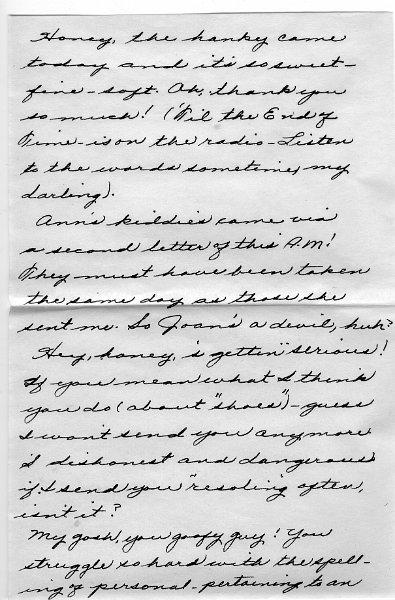 Honey, the hanky came
today and it's so sweet -
fine - soft. Oh, thank you
so much! ('Til the End of
Time - is on the radio - Listen
to the words sometime, my
darling).
Ann's kiddies came via
a second letter of this A.M!
They must have been taken
the same day as those she
sent me. So Joan's a devil, huh?
Hey, honey, 's gettin' serious!
If you mean what I think
you do (about "shoes") - guess
I won't send you anymore
dishonest and dangerous
if I send you "resoling" often,
isn't it?
My gosh, you goofy guy! You
struggle so hard with the spell-
ing of personal - pertaining to an